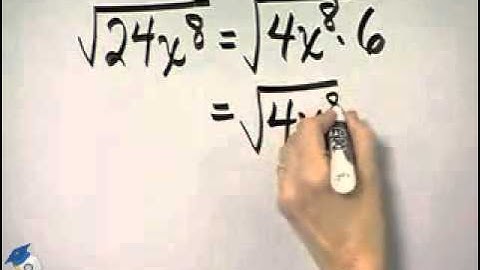 √24x⁸ = √4x⁸·6
= √4x⁸